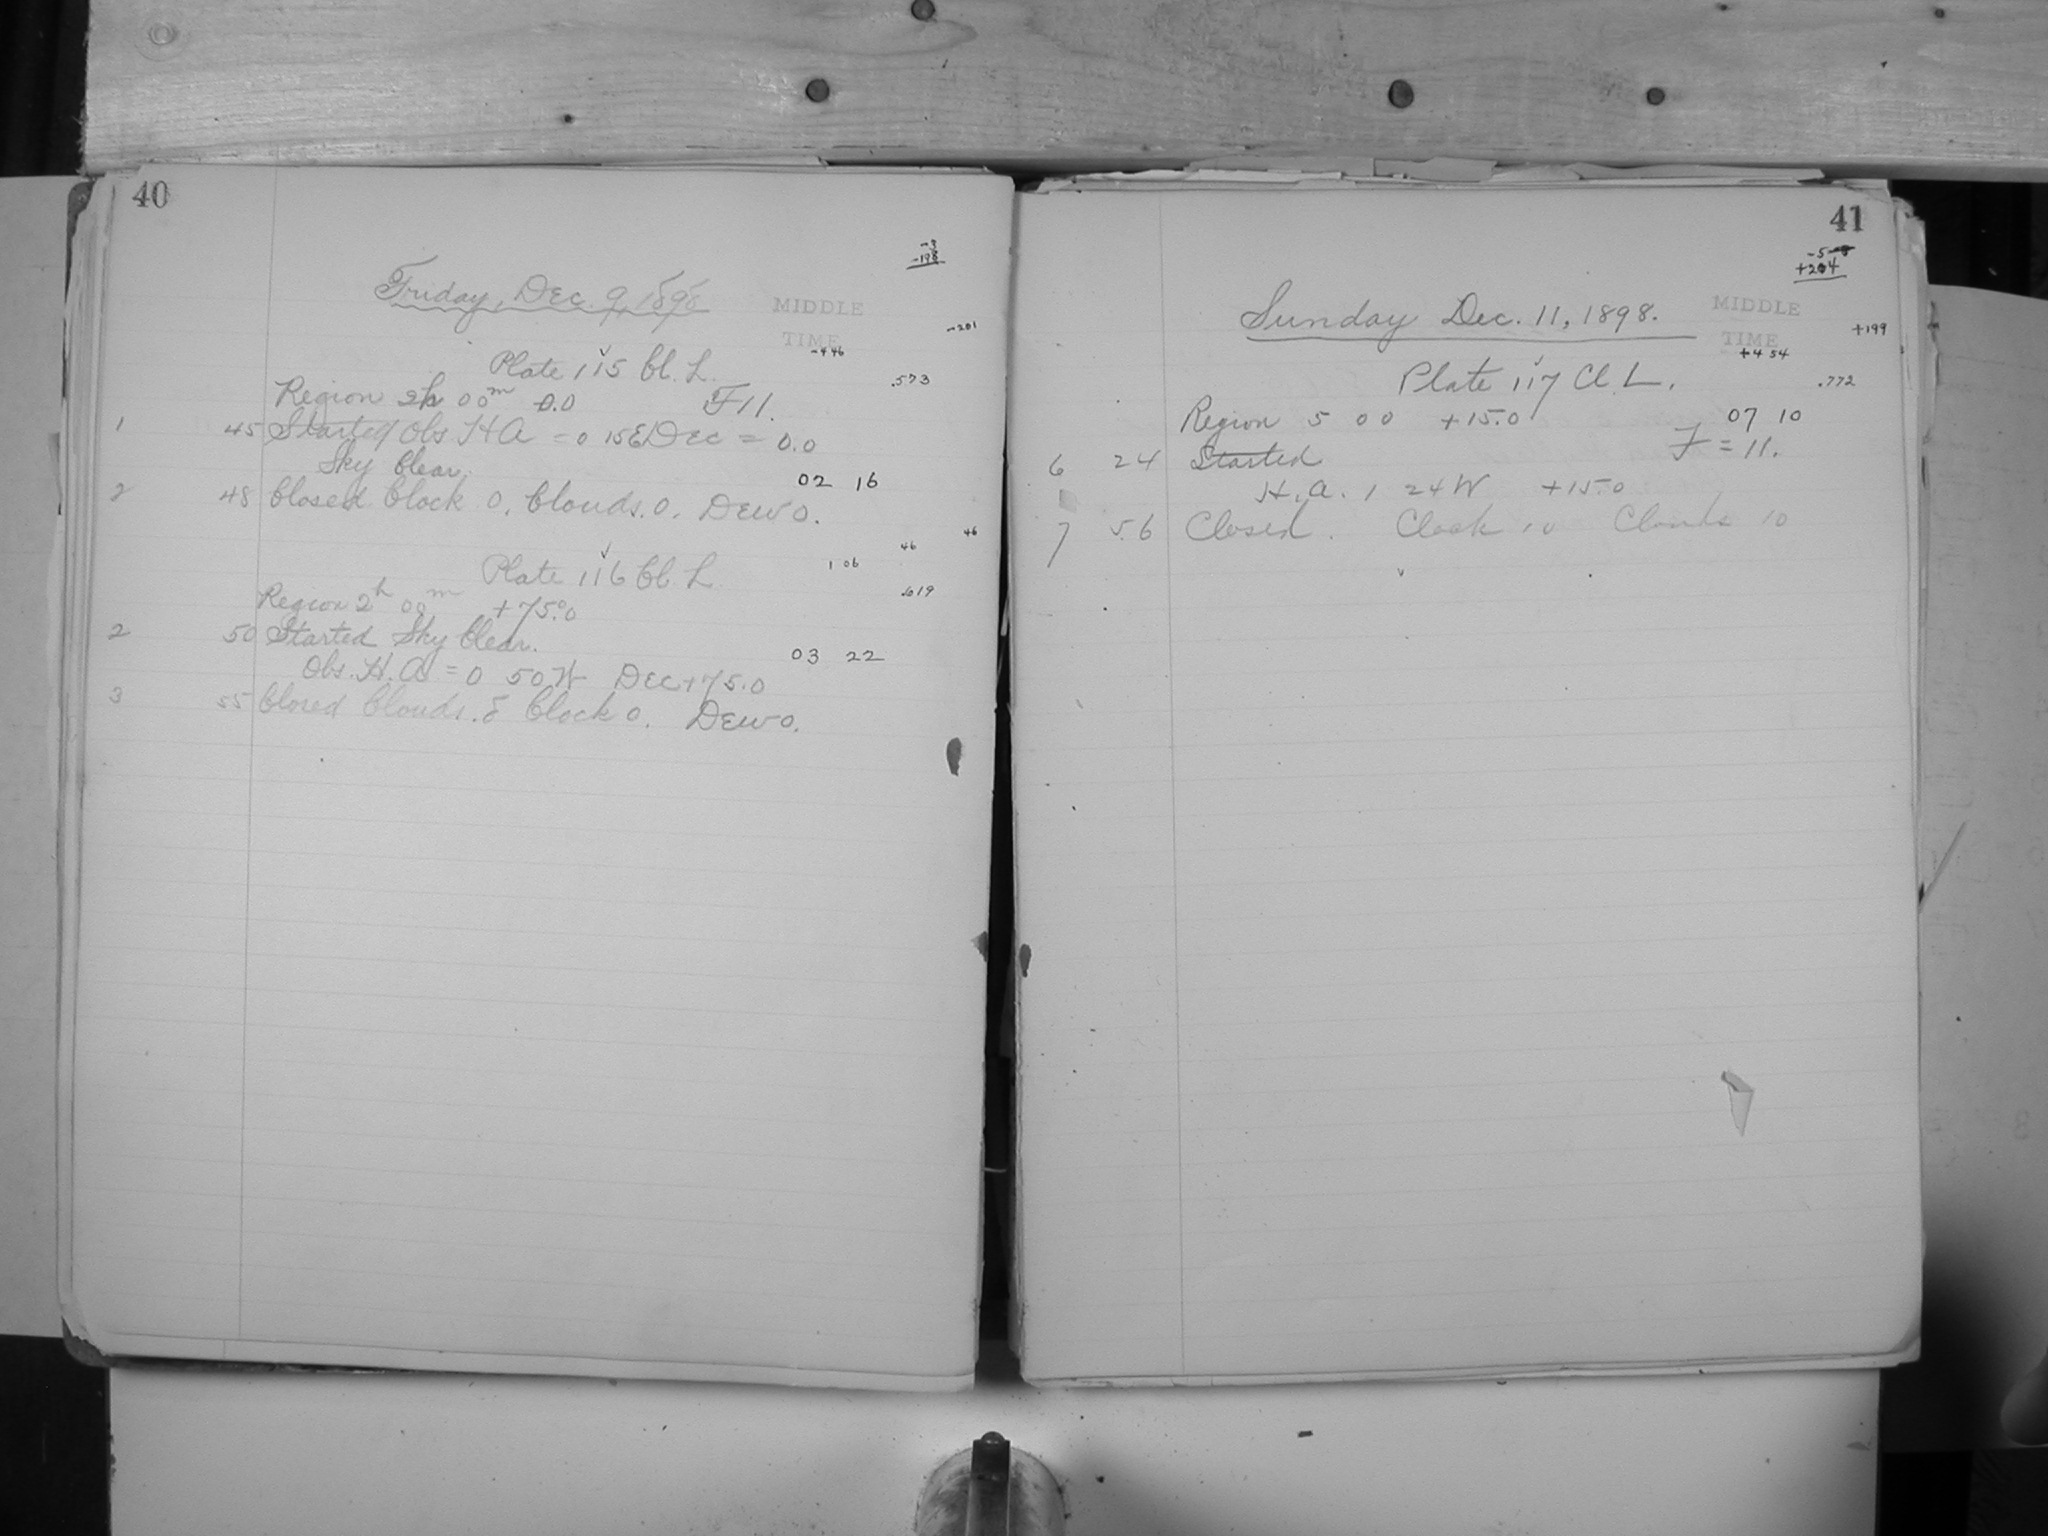 40
-3
-198
Friday, Dec. 9, 1898
MIDDLE
TIME
-201
-446
Plate 115 Cl. L.
.573
Region 2h 00m 0.0 F 11.
1 45 Started Obs. H A = 0 15E Dec = 0.0
Sky Clear.
02 16
2 48 Closed Clock 0. Clouds. 0. Dew 0.
46 46
Plate 116 Cl. L.
1 06
.619
Region 2h 00m +75.0
2 50 Started Sky Clear.
03 22
Obs. H. A = 0 50 W Dec +75.0
3 55 Closed Clouds. 8 Clock 0. Dew 0.
41
-5
+204
Sunday Dec. 11, 1898.
MIDDLE
TIME
+199
+4 54
Plate 117 Cl. L.
.772
Region 5 00 +15.0 07 10
6 24 Started F = 11.
H. A. 1 24 W +15.0
7 56 Closed. Clock 10 Clouds 10